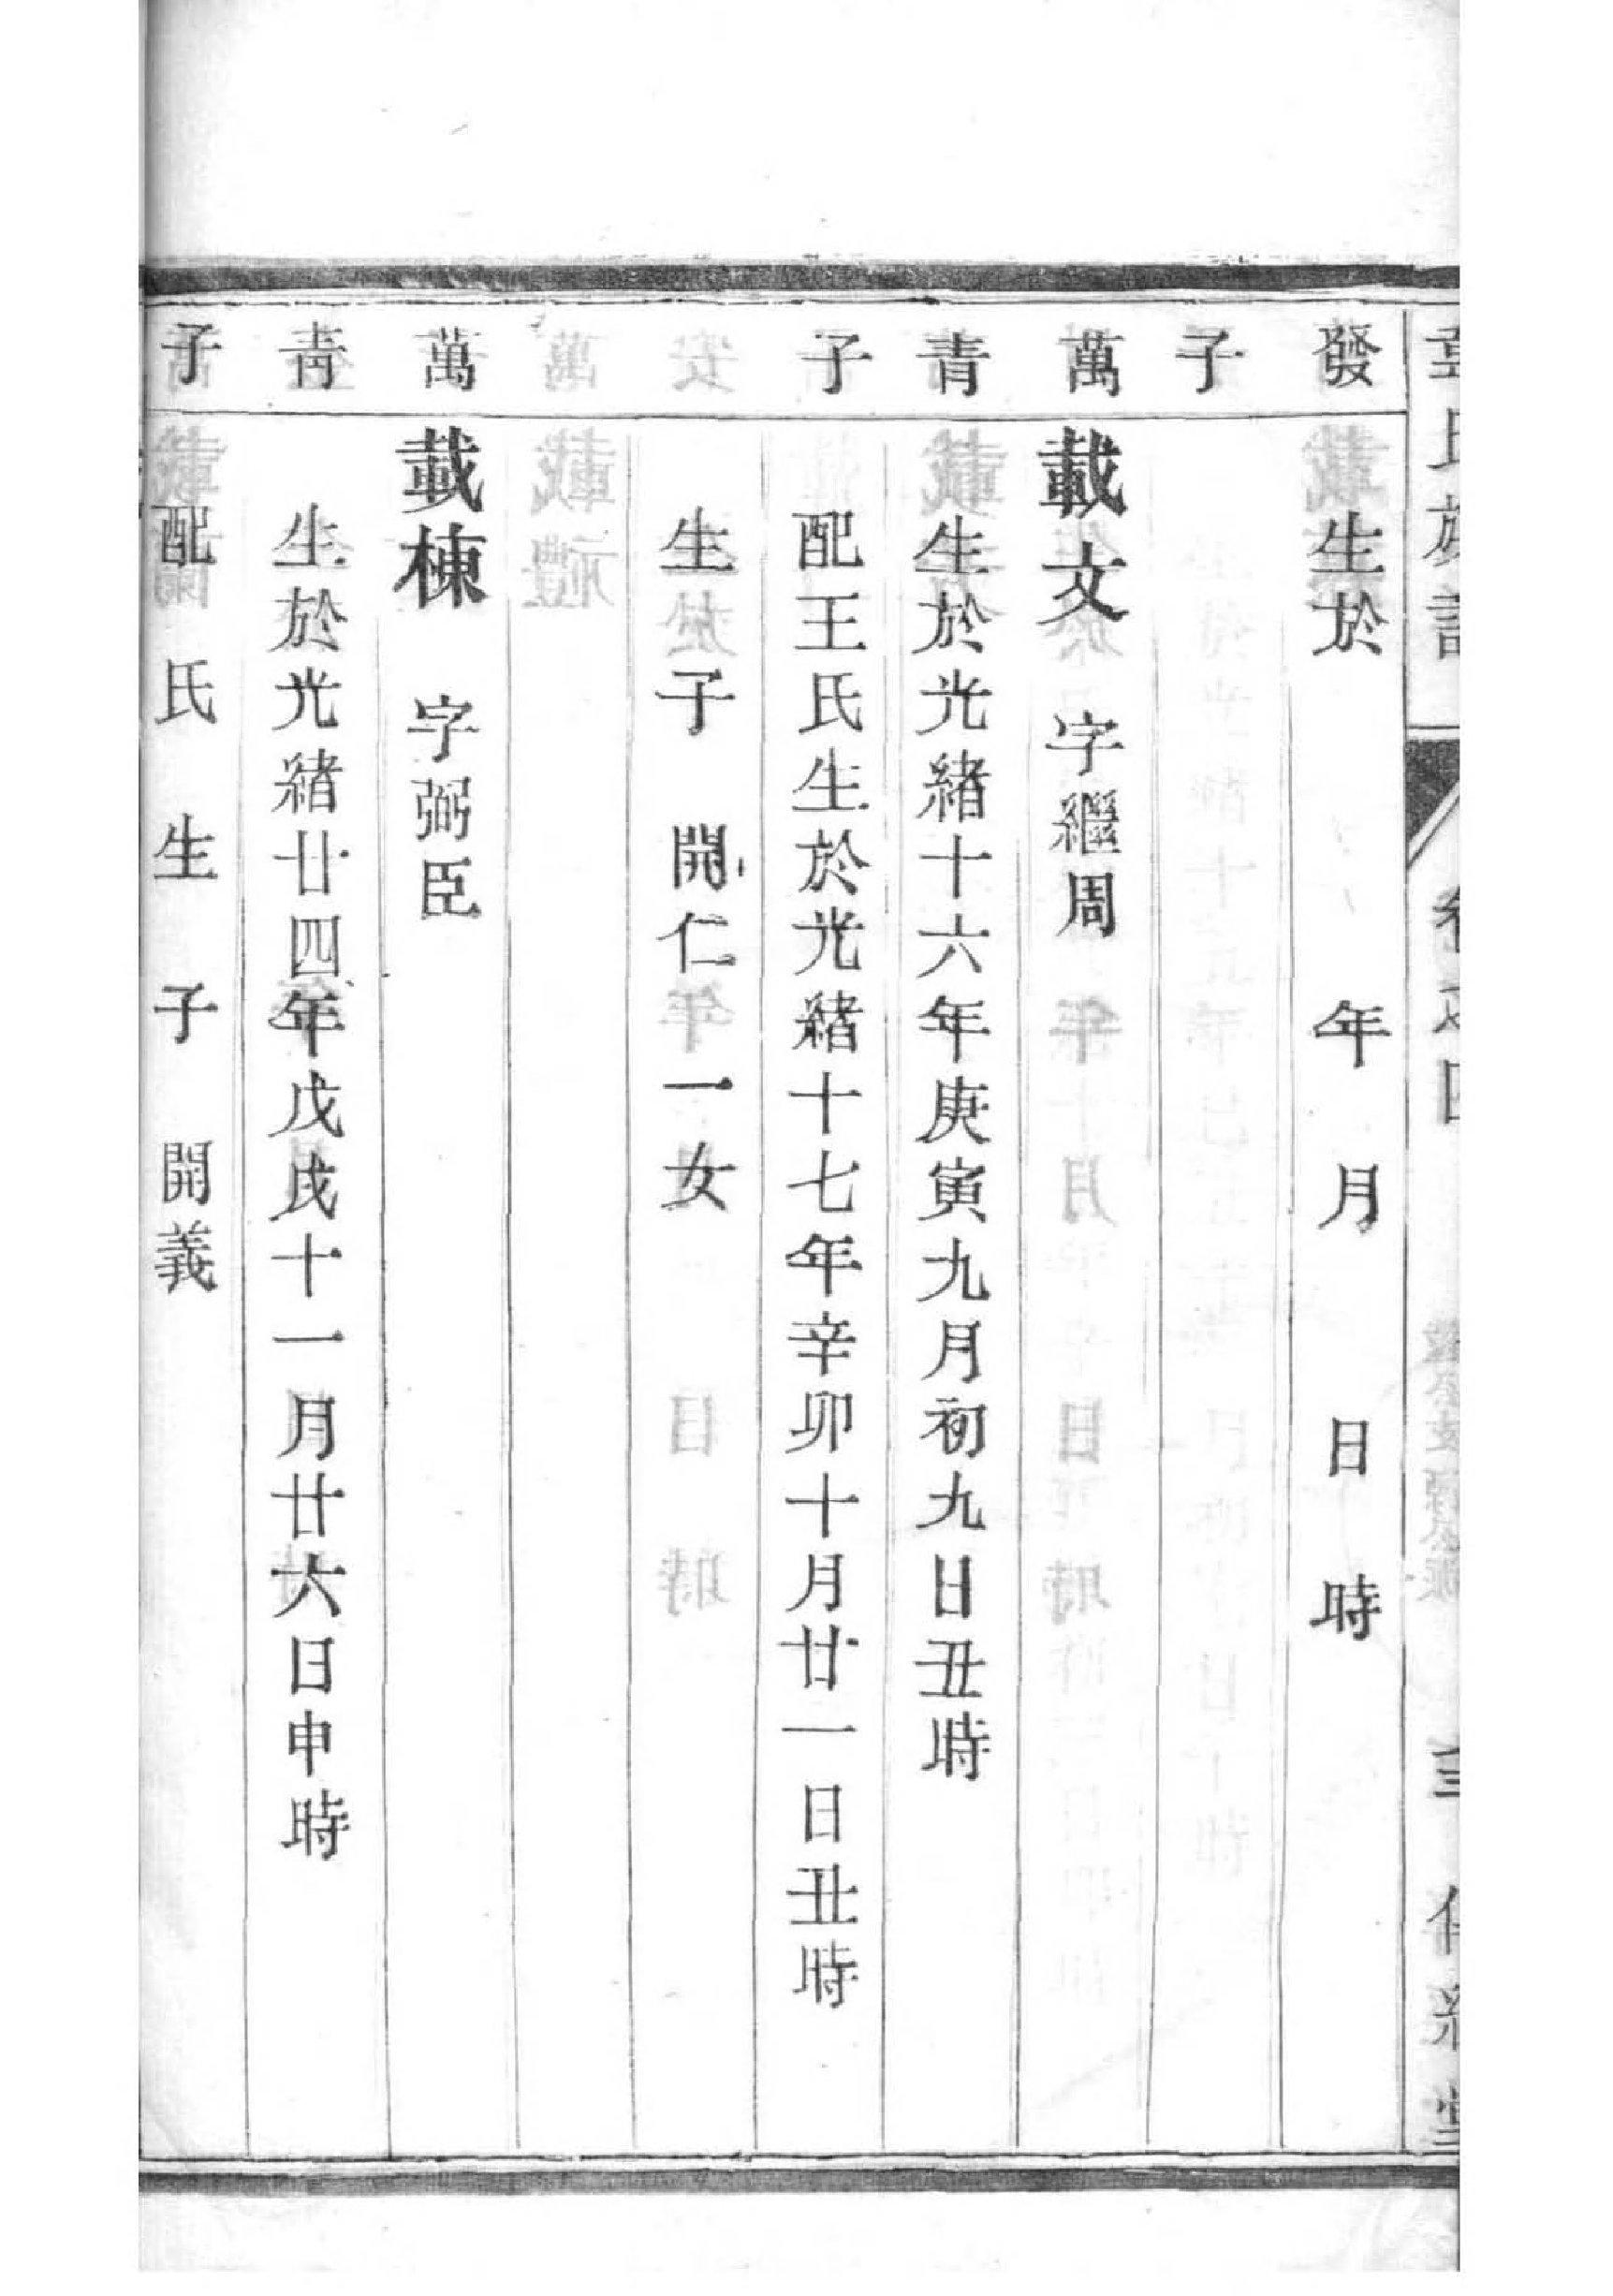 氏族譜 卷之四
發 生於 年 月 日 時
子
萬 載文 字繼周
青 生於光緒十六年庚寅九月初九日丑時
子 配王氏生於光緒十七年辛卯十月廿一日丑時
生子 開仁 一女
萬 載棟 字弼臣
青 生於光緒廿四年戊戌十一月廿六日申時
子 配 氏 生 子 開義